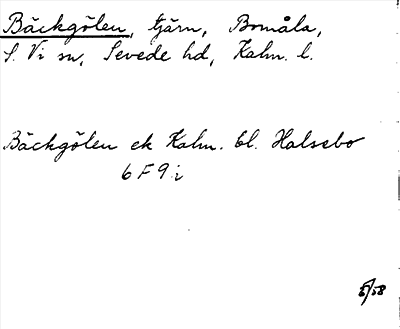 Bäckgölen, tjärn, Bomåla,
S. Vi sn, Sevede hd, Kalm. l.
Bäckgölen ek Kalm. bl. Halsebo
6 F 9 i
5/58